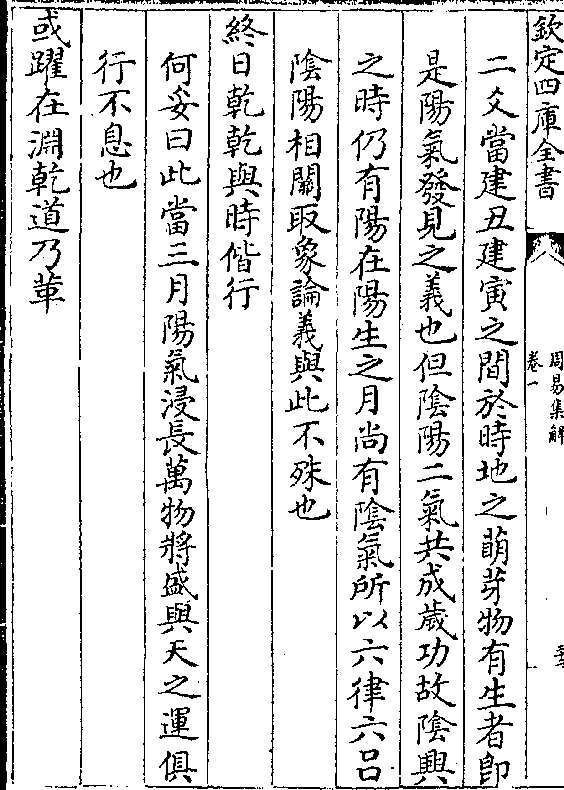 欽定四庫全書
周易集解
卷一
二爻當建丑建寅之間於時地之萌芽物有生者即
是陽氣發見之義也但陰陽二氣共成歲功故陰興
之時仍有陽在陽生之月尚有陰氣所以六律六呂
陰陽相關取象論義與此不殊也
終日乾乾與時偕行
何妥曰此當三月陽氣浸長萬物將盛與天之運俱
行不息也
或躍在淵乾道乃革